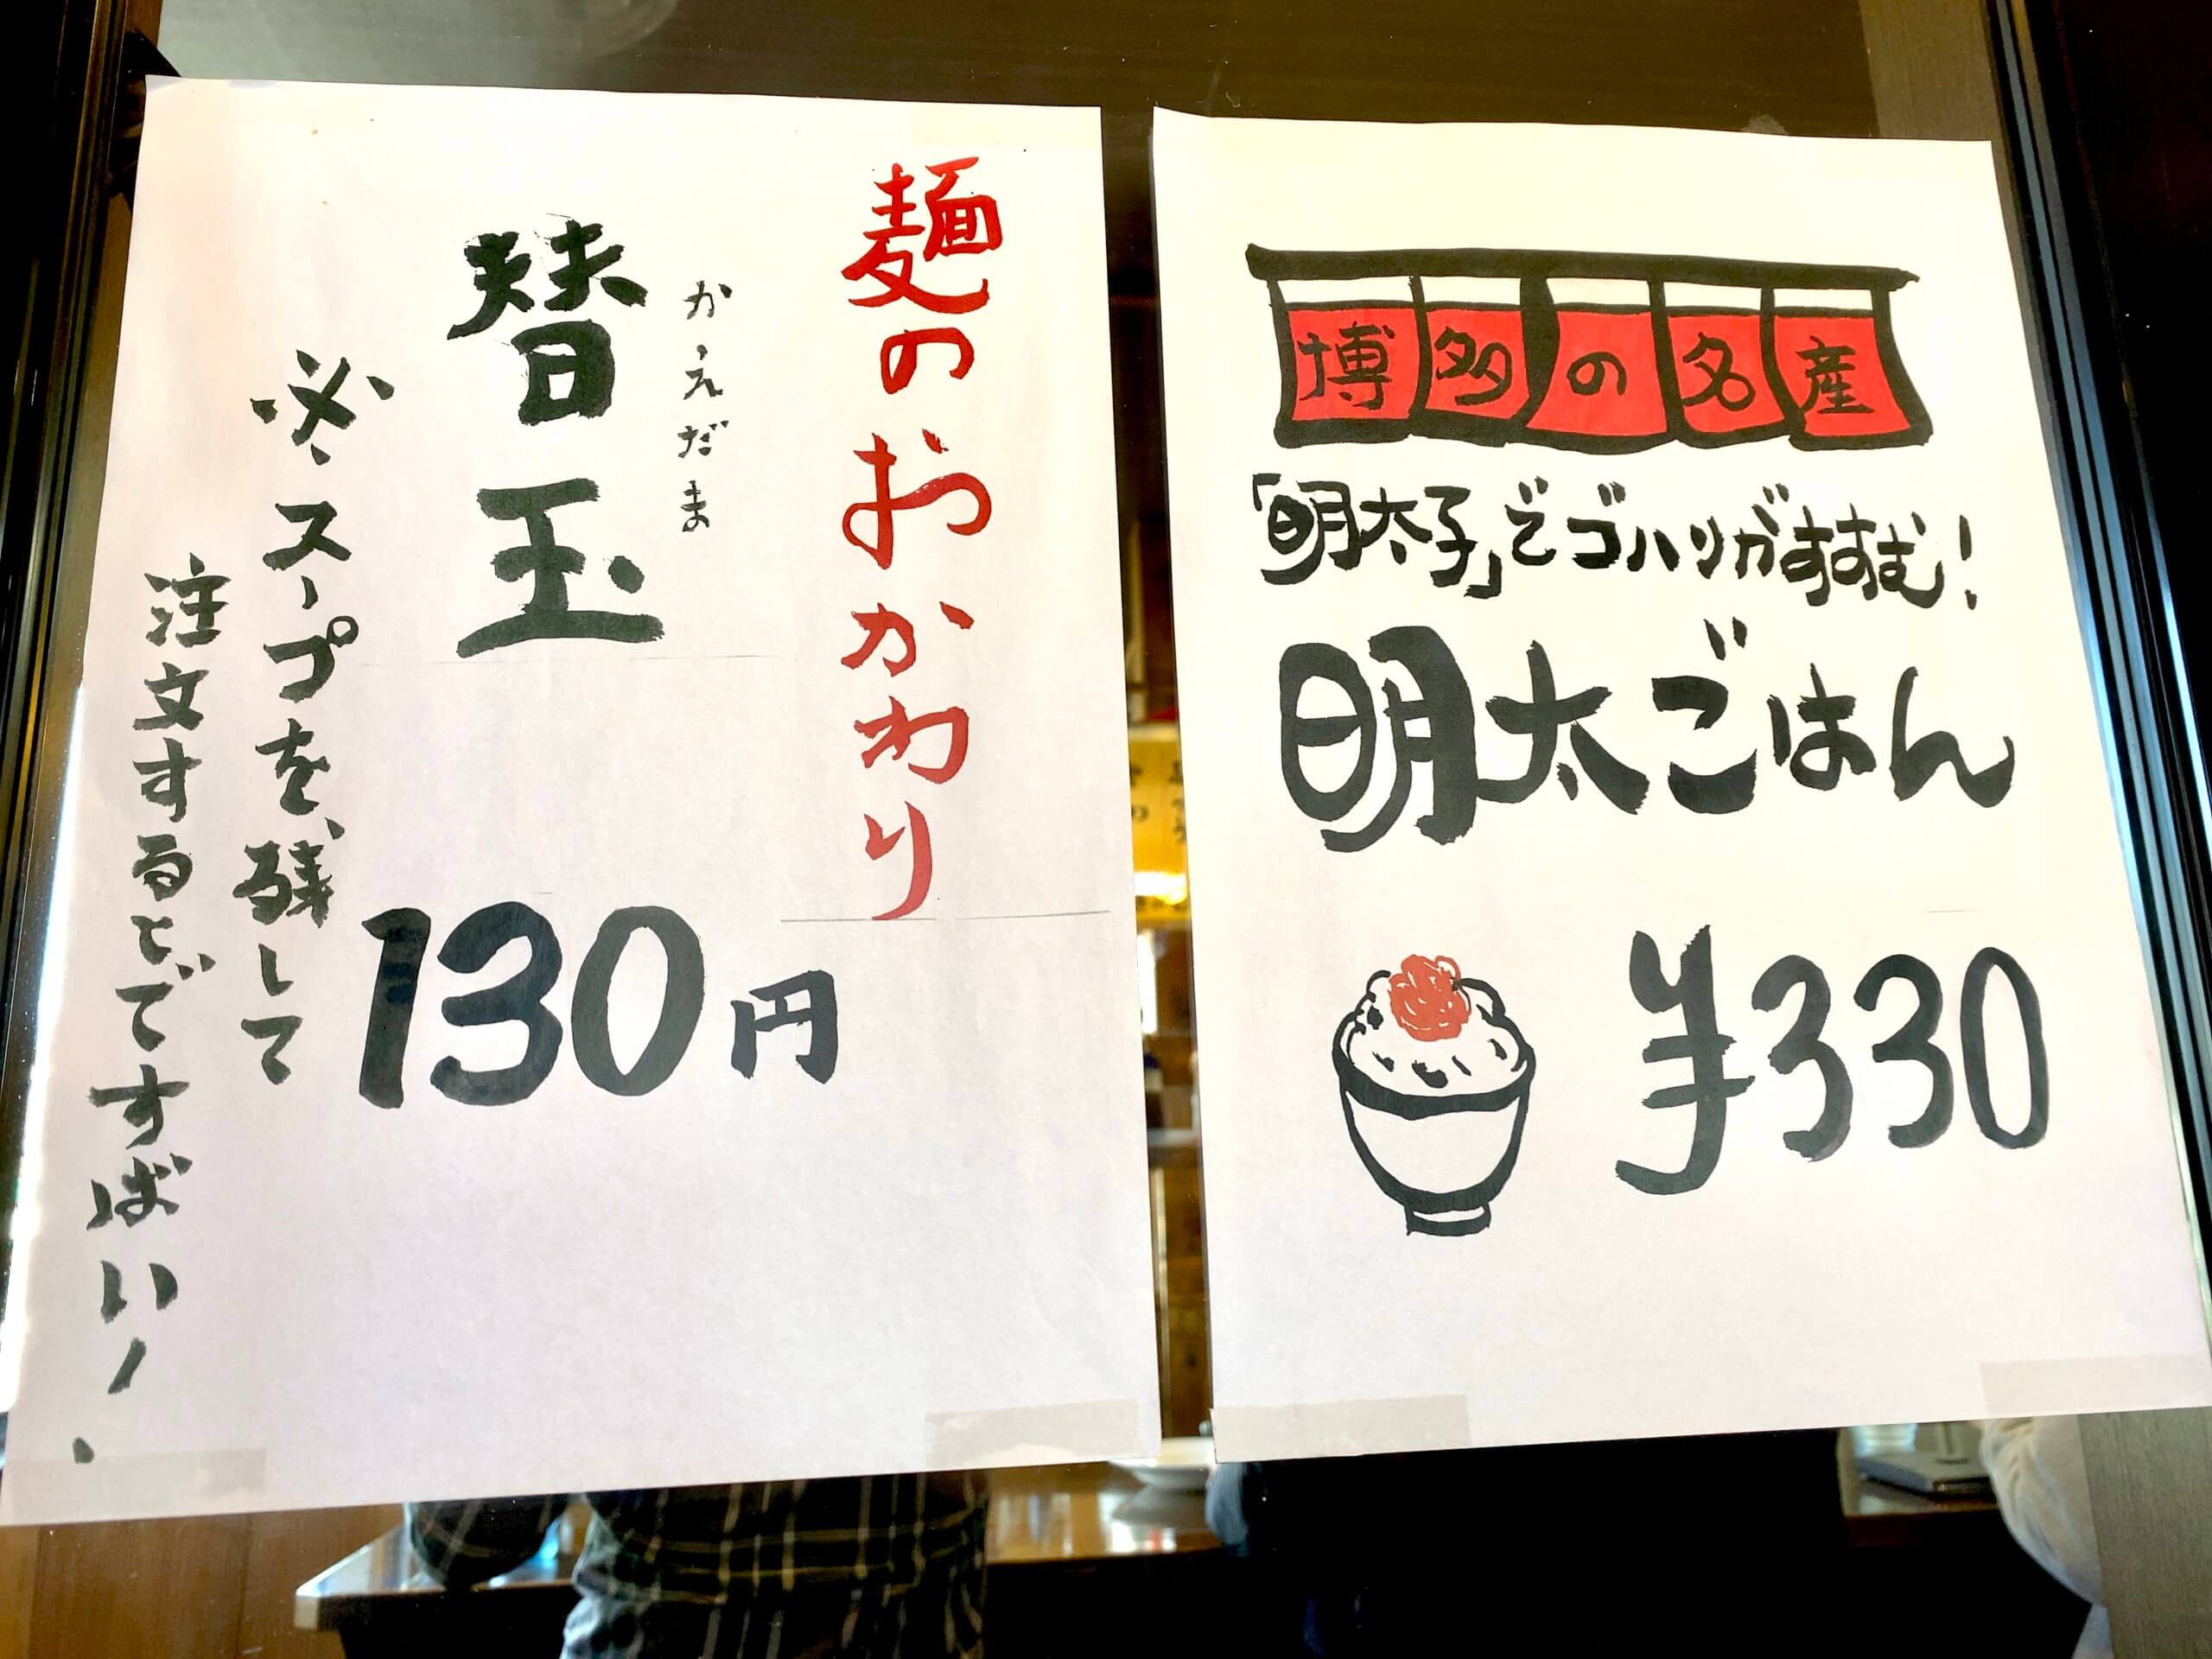 麺のおかわり
かえだま
替玉
130円
必、スープを、残して
注文すると、ですばい!
博多の名産
「明太子」でゴハンがすすむ!
明太ごはん
¥330